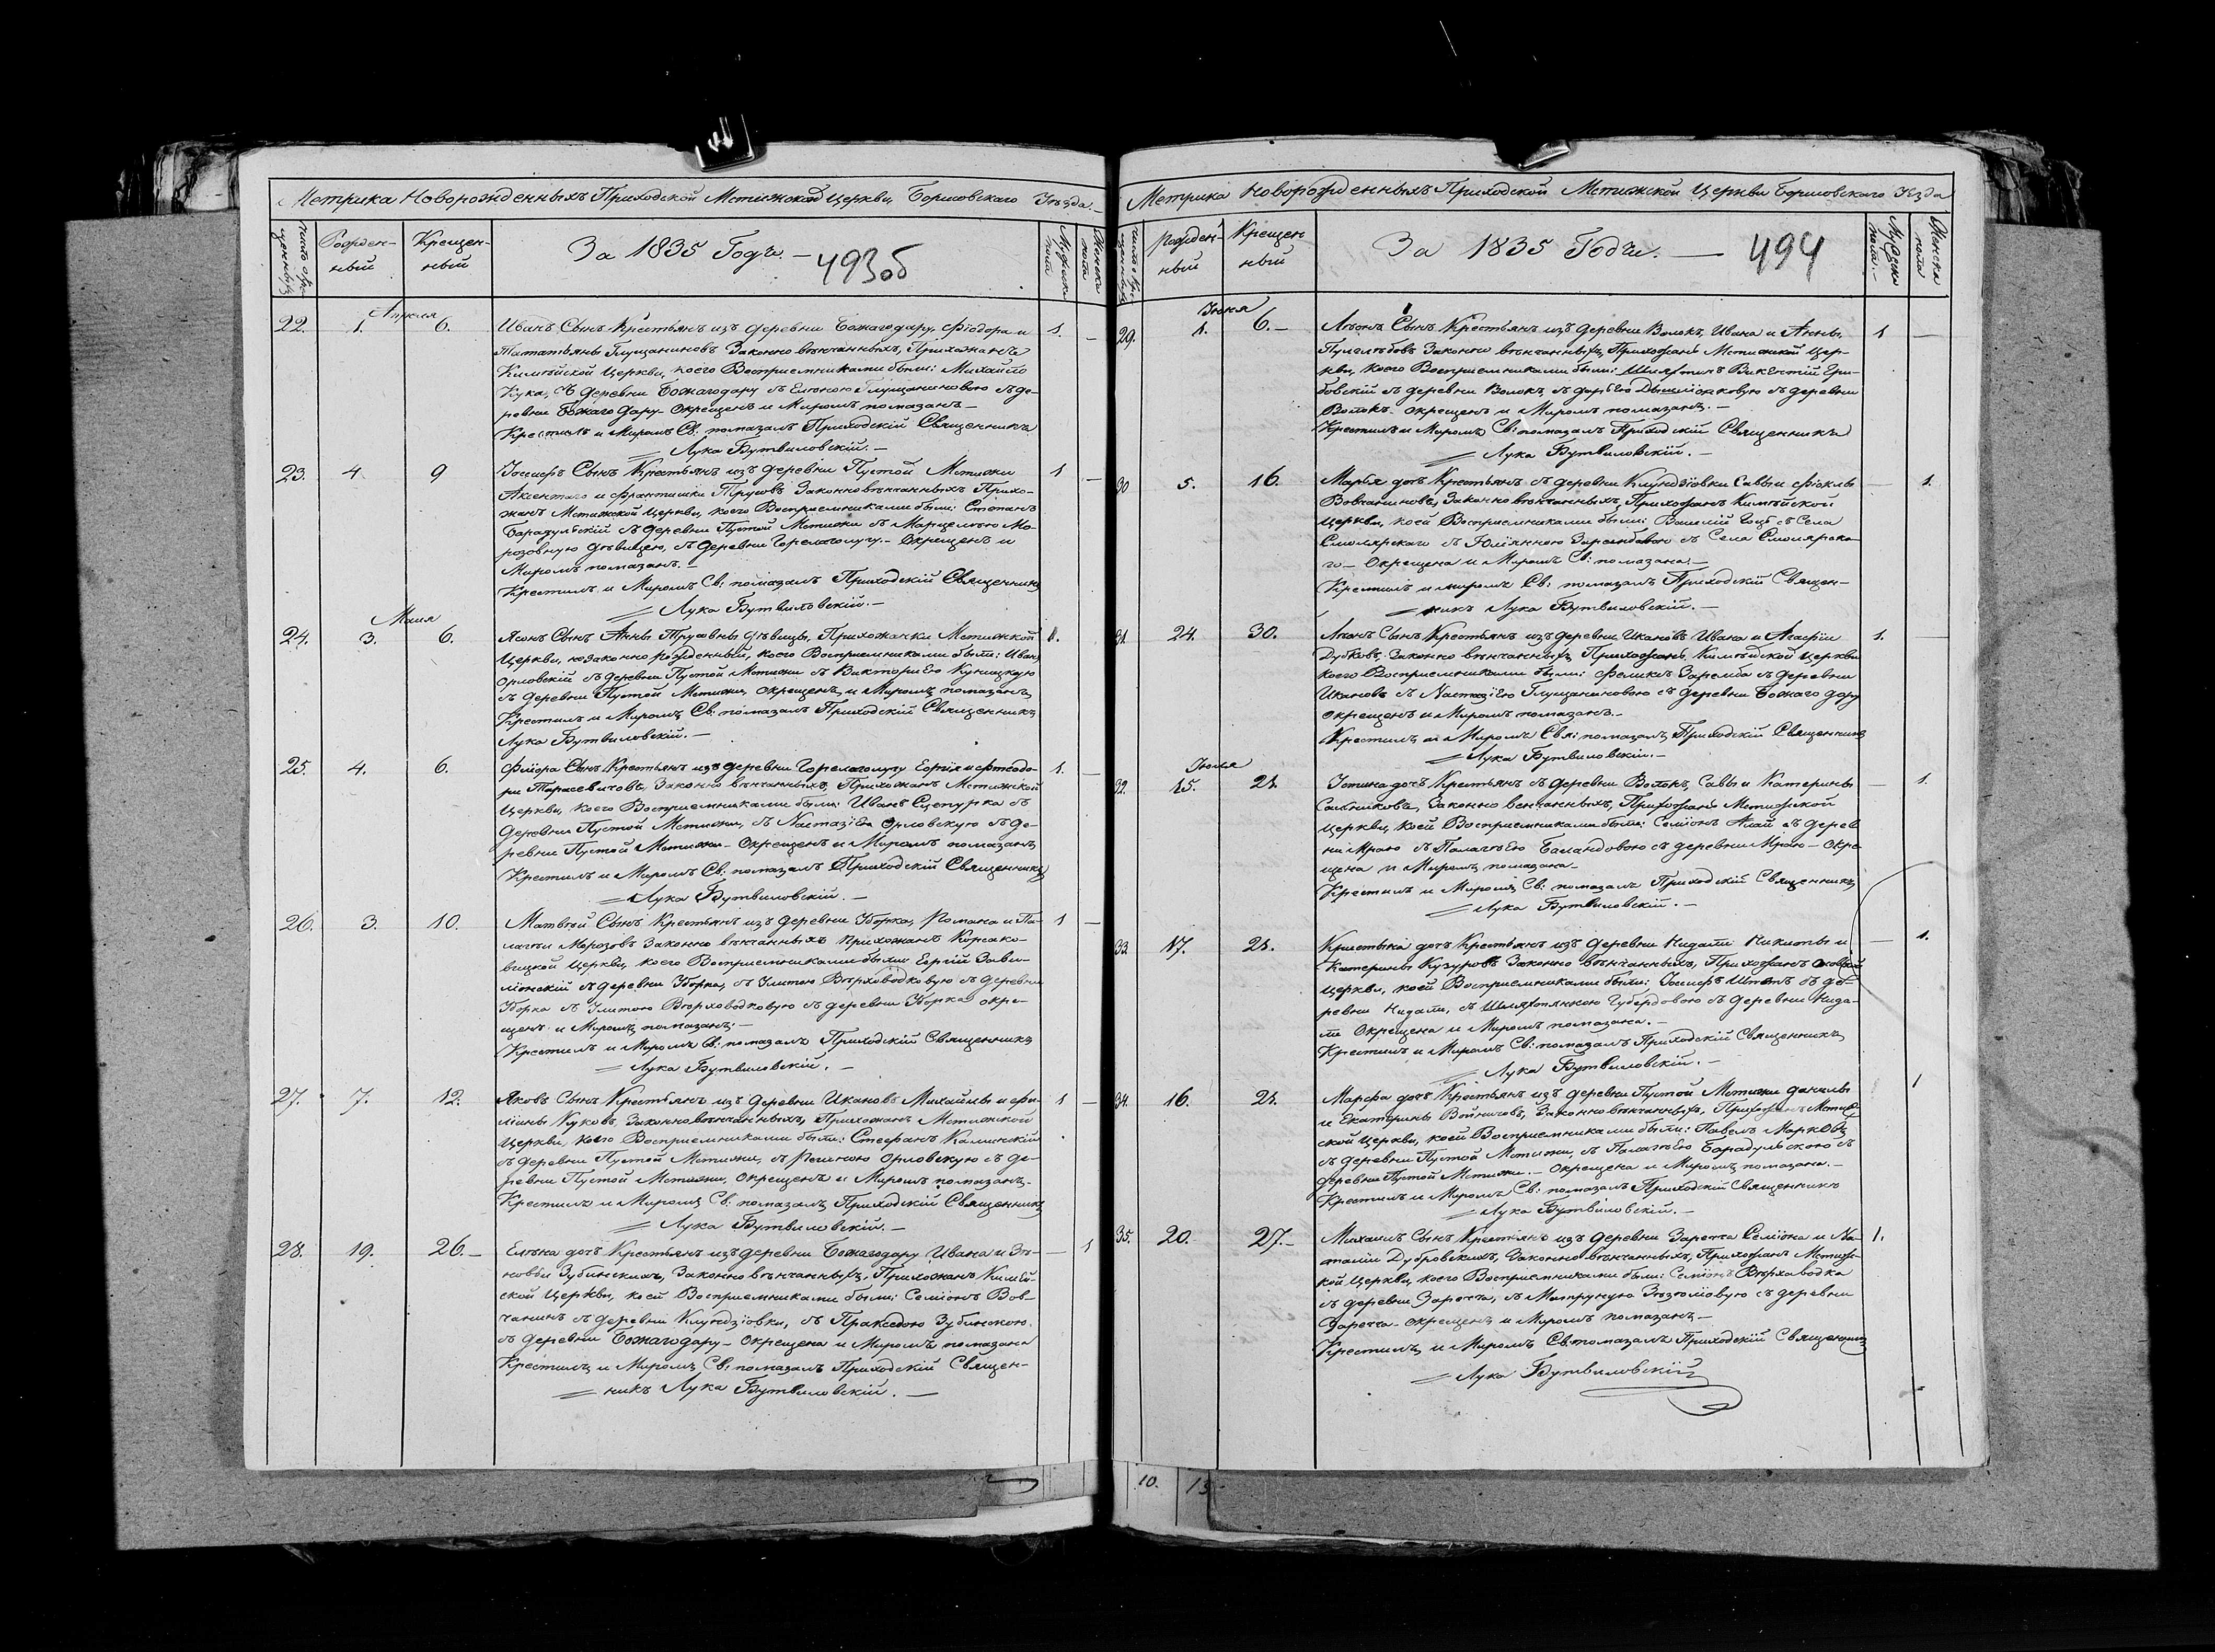 Метрика Новорожденныхъ Приходской Мстижской Церкви, Борисовскаго Уѣзда.
Рожден-
ный
Крещен-
ный
За 1835 Годъ. —
493 об
Мужеска
пола
Женска
пола
Апреля
22. 1. 6. Иванъ Сынъ Крестьянъ изъ деревни Божагодару, Фіодора и 1. —
Татьяны Глущаниновъ Законно вѣнчанныхъ, Прихожанъ
Килѣйской Церкви, коего Восприемниками были: Михайло
Кука, съ деревни Божагодару съ Еленою Глущаниновою съ де-
ревни Божаго дару. Окрещенъ и Миромъ помазанъ —
Крестилъ и Миромъ Св: помазалъ Приходскій Священникъ
Лука Бутвиловскій. —
23. 4. 9 Іосифъ Сынъ Крестьянъ изъ деревни Пустой Мстижи 1 —
и Франтишки Трусовъ Законновѣнчанныхъ Прихо-
жанъ Мстижской Церкви, коего Восприемниками были: Степанъ
Барадульскій съ деревни Пустой Мстижи съ Марцелею Мо-
розовною дѣвицею, съ деревни Горелаголугу. — Окрещенъ и
Миромъ помазанъ. —
Крестилъ и Миромъ Св: помазалъ Приходскій Священникъ
Лука Бутвиловскій. —
Маия
24. 3. 6. Сынъ Анны Трусовны дѣвицы, Прихожачки Мстижской 1.
Церкви, незаконно рожденный, коего Восприемниками были: Иванъ
Орловскій съ деревни Пустой Мстижи съ Викторіею Куницкую
съ деревни Пустой Мстижи, окрещенъ и Миромъ помазанъ
Крестилъ и Миромъ Св: помазалъ Приходскій Священникъ
Лука Бутвиловскій. —
25. 4. 6. Сынъ Крестьянъ изъ деревни Горелаголугу 1. —
Тарасевичовъ, Законно вѣнчанныхъ, Прихожанъ Мстижской
Церкви, коего Восприемниками были: Иванъ съ
деревни Пустой Мстижи, съ Настазіею Орловскую съ де-
ревни Пустой Мстижи — Окрещенъ и Миромъ помазанъ
Крестилъ и Миромъ Св: помазалъ Приходскій Священникъ
Лука Бутвиловскій. —
26. 3. 10. Матвѣй Сынъ Крестьянъ изъ деревни Уборка, Романа и Па- 1 —
лагъи Морозовъ Законно вѣнчанныхъ прихожанъ Корсако-
вицкой Церкви, коего Восприемниками были
съ деревни Уборка, съ Улитою Вѣрховодковую съ деревни
Уборка съ Улитою Вѣрховодковую съ деревни Уборка окре-
щенъ и Миромъ помазанъ. —
Крестилъ и Миромъ Св: помазалъ Приходскій Священникъ
Лука Бутвиловскій. —
27. 7. 12. Яковъ Сынъ Крестьянъ изъ деревни Икановъ Михайлы и 1 —
Куковъ, Законновѣнчанныхъ, Прихожанъ Мстижской
Церкви, коего Восприемниками были: Стефанъ Калинскій
съ деревни Пустой Мстижи, съ Региною Орловскую съ де-
ревни Пустой Мстижи, окрещенъ и Миромъ помазанъ —
Крестилъ и Миромъ Св: помазалъ Приходскій Священникъ
Лука Бутвиловскій. —
28. 19. 26. — Елѣна дочъ Крестьянъ изъ деревни Божагодару Ивана и Зѣ- — 1
новьи Зубинскихъ, Законно вѣнчанныхъ, Прихожанъ Килѣй-
ской Церкви, коей Восприемниками были: Семіонъ Вов-
чанинъ съ деревни Клундзіовки, съ Праксе́дою Зубинскою
съ деревни Божагодару — Окрещена и Миромъ помазана
Крестилъ и Миромъ Св: помазалъ Приходскій Священ-
никъ Лука Бутвиловскій. —
Метрика Новорожденныхъ Приходской Мстижской Церкви Борисовскаго Уѣзда
Рожден-
ный
Крещен
ный
За 1835 Годъ. —
494
Мужеска
пола. —
Женска
пола
Іюня
29. 1. 6. — Сынъ Крестьянъ изъ деревни Волокъ, Ивана и Анны 1 —
Законно вѣнчанныхъ, Прихожанъ Мстижской Цер-
кви, коего Восприемниками были: Шляхтичъ Викентій Гри-
бовскій съ деревни Волокъ, съ съ деревни
Волокъ. окрещенъ и Миромъ помазанъ. —
Крестилъ и Миромъ Св: помазалъ Приходскій Священникъ
Лука Бутвиловскій. —
30 5. 16. Марья дочъ Крестьянъ съ деревни Клундзіовки Саввы и Фіоклы — 1.
Вовчаниновъ, Законно вѣнчанныхъ, Прихожанъ Килѣйской
Церкви, коей Восприемниками были: съ Села
Смолярскаго съ Юліянною Зарембовою съ Села Смолярска-
го — Окрещена и Миромъ Св: помазана. —
Крестилъ и миромъ Св: помазалъ Приходскій Священ-
никъ Лука Бутвиловскій. —
31 24. 30. Сынъ Крестьянъ изъ деревни Икановъ Ивана и Агафіи 1. —
Дубковъ, Законно вѣнчанныхъ Прихожанъ Килѣйской церкви
коего Восприемниками были: Феликсъ Заремба съ деревни
Икановъ съ Настазіею Глущаниновою съ деревни Божаго дару
окрещенъ и Миромъ помазанъ. —
Крестилъ и Миромъ Свя: помазалъ Приходскій Священникъ
Лука Бутвиловскій. —
Іюля
32. 15. 21. дочъ Крестьянъ съ деревни Волокъ, Савы и Катерины — 1.
Законно венчанныхъ, Прихожанъ Мстижской
церкви, коей Восприемниками были: Семіонъ съ дерев
ни Мраю съ Палагѣею Баландовою съ деревни Мраю — Окре
щена и Миромъ помазана —
Крестилъ и Миромъ Св: помазалъ Приходскій Священникъ
Лука Бутвиловскій. —
33 17. 21. дочъ Крестьянъ изъ деревни Нидали Никиты и — 1.
Катерины Кузуровъ Законно вѣнчанныхъ, Прихожанъ
церкви, коей Восприемниками были: Іосифъ съ де-
ревни Нидали, съ Шляхтянкою Губердовою съ деревни Нида-
ли Окрещена и Миромъ помазана. —
Крестилъ и Миромъ Св: помазалъ Приходскій Священникъ
Лука Бутвиловскій. —
34. 16. 21. Марфа дочъ Крестьянъ изъ деревни Пустой Мстижи данилы 1
и Екатерины Войничовъ, Законновѣнчанныхъ, Прихожанъ Мстиж
ской Церкви, коей Восприемниками были: Павелъ
съ деревни Пустой Мстижи, съ Палагѣею Барадульскою съ
деревни Пустой Мстижи. — Окрещена и Миромъ помазана. —
Крестилъ и Миромъ Св: помазалъ Приходскій Священникъ
Лука Бутвиловскій. —
35. 20. 27. — Михаилъ Сынъ Крестьянъ изъ деревни Заречча Семіона и На- 1.
таліи Дубровскихъ, Законно вѣнчанныхъ, Прихожанъ Мстиж-
кой Церкви, коего Восприемниками были: Семіонъ Вѣрховодка
съ деревни Заречча, съ Матруную съ деревни
Заречча — окрещенъ и Миромъ помазанъ —
Крестилъ и Миромъ Св: помазалъ Приходскій Священникъ
Лука Бутвиловскій
10. 13